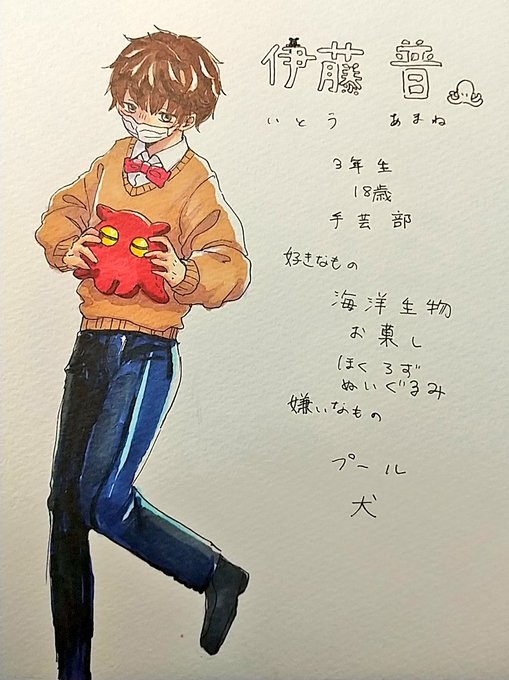 伊藤 普
いとう あまね
3年生
18歳
手芸部
好きなもの
海洋生物
お菓し
ほくろず
ぬいぐるみ
嫌いなもの
プール
犬